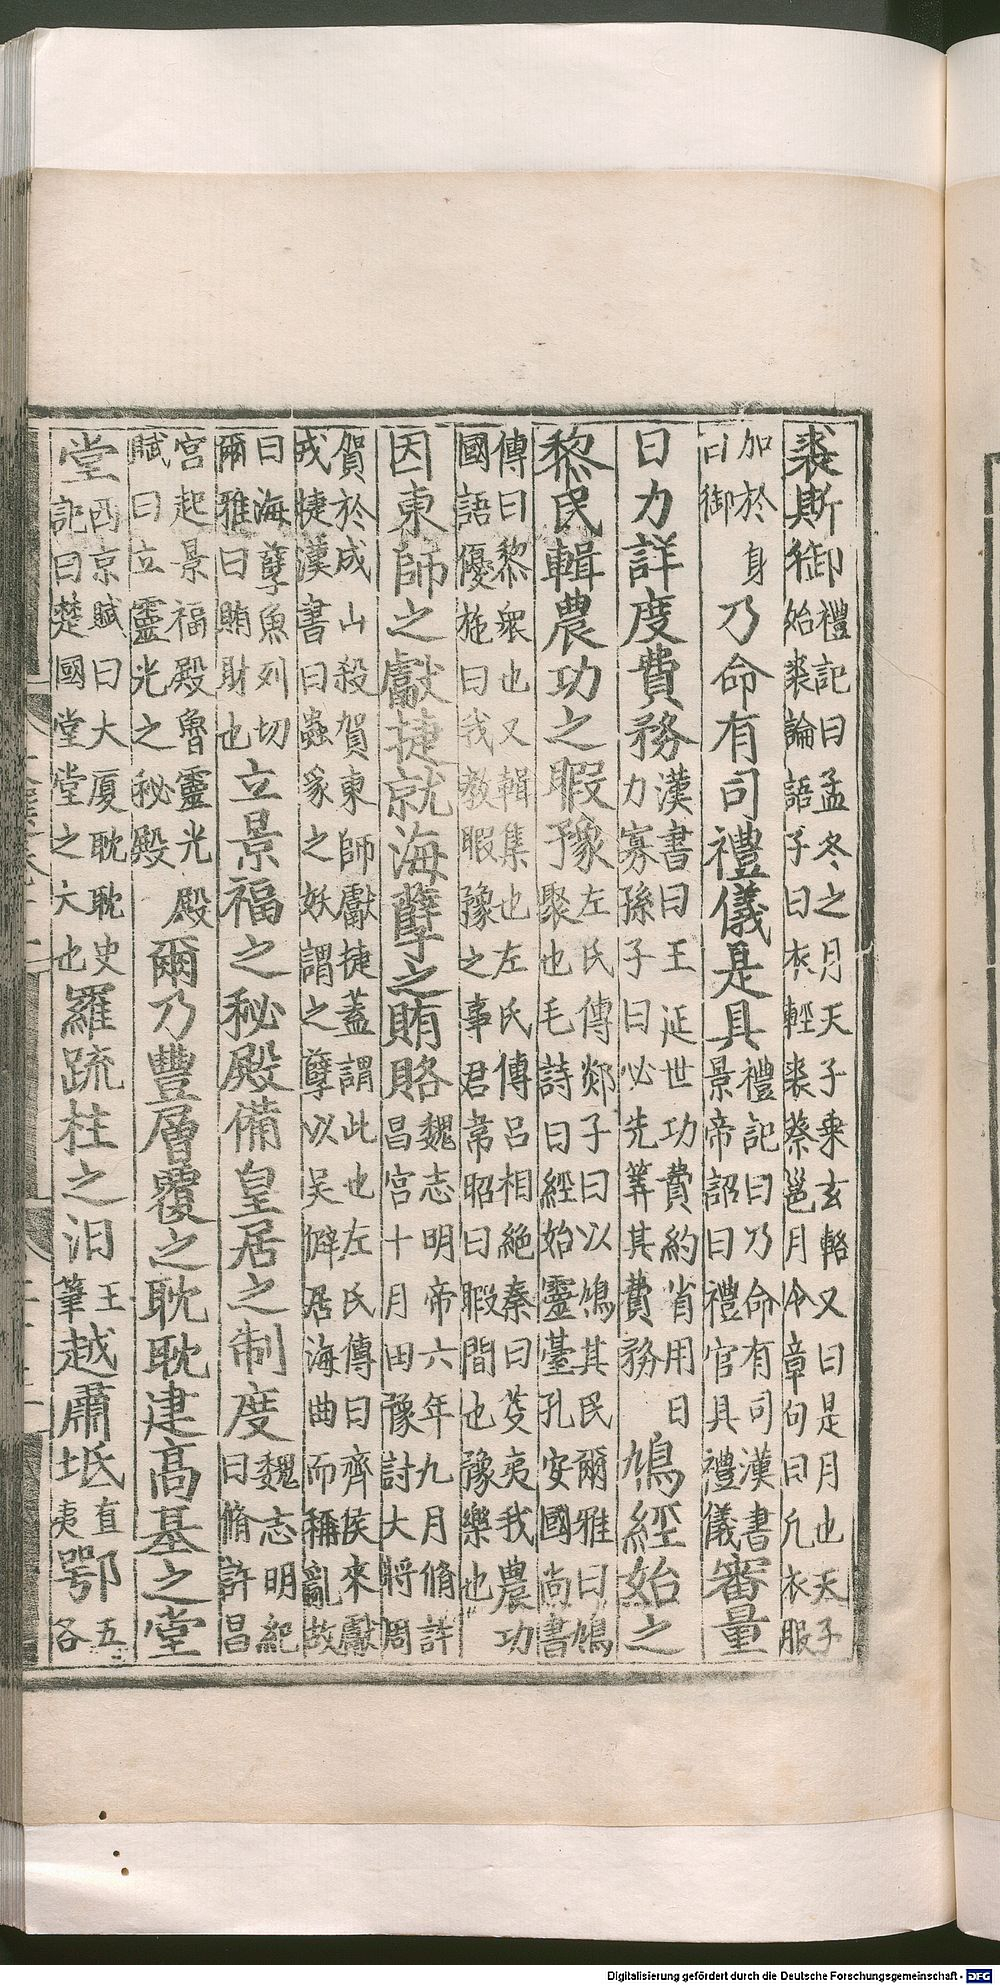 裘斯御禮記曰孟冬之月天子乗玄輅又曰是月也天子
始裘論語子曰衣輕裘蔡邕月令章句曰凢衣服
加於身
曰御乃命有司禮儀是具禮記曰乃命有司漢書
景帝詔曰禮官具禮儀審量
日力詳度費務漢書曰王延世功費約省用日
力寡孫子曰必先筭其費務鳩經始之
黎民輯農功之暇豫左氏傳郯子曰以鳩其民爾雅曰鳩
聚也毛詩曰經始靈臺孔安國尚書
傳曰黎衆也又輯集也左氏傳呂相絶秦曰芟夷我農功
國語優施曰我教暇豫之事君韋昭曰暇間也豫樂也
因東師之獻捷就海孽之賄賂魏志明帝六年九月脩許
昌宮十月田豫討大將周
賀於成山殺賀東師獻捷蓋謂此也左氏傳曰齊侯來獻
戎捷漢書曰蟲豸之妖謂之孽以吴僻居海曲而稱亂故
曰海孽魚列切
爾雅曰賄財也立景福之秘殿備皇居之制度魏志明紀
曰脩許昌
宮起景福殿魯靈光殿
賦曰立靈光之秘殿爾乃豐層覆之耽耽建高基之堂
堂西京賦曰大厦耽耽史
記曰楚國堂堂之大也羅疏柱之汩王
筆越肅坻直
夷鄂五
各
Digitalisierung gefördert durch die Deutsche Forschungsgemeinschaft - DFG